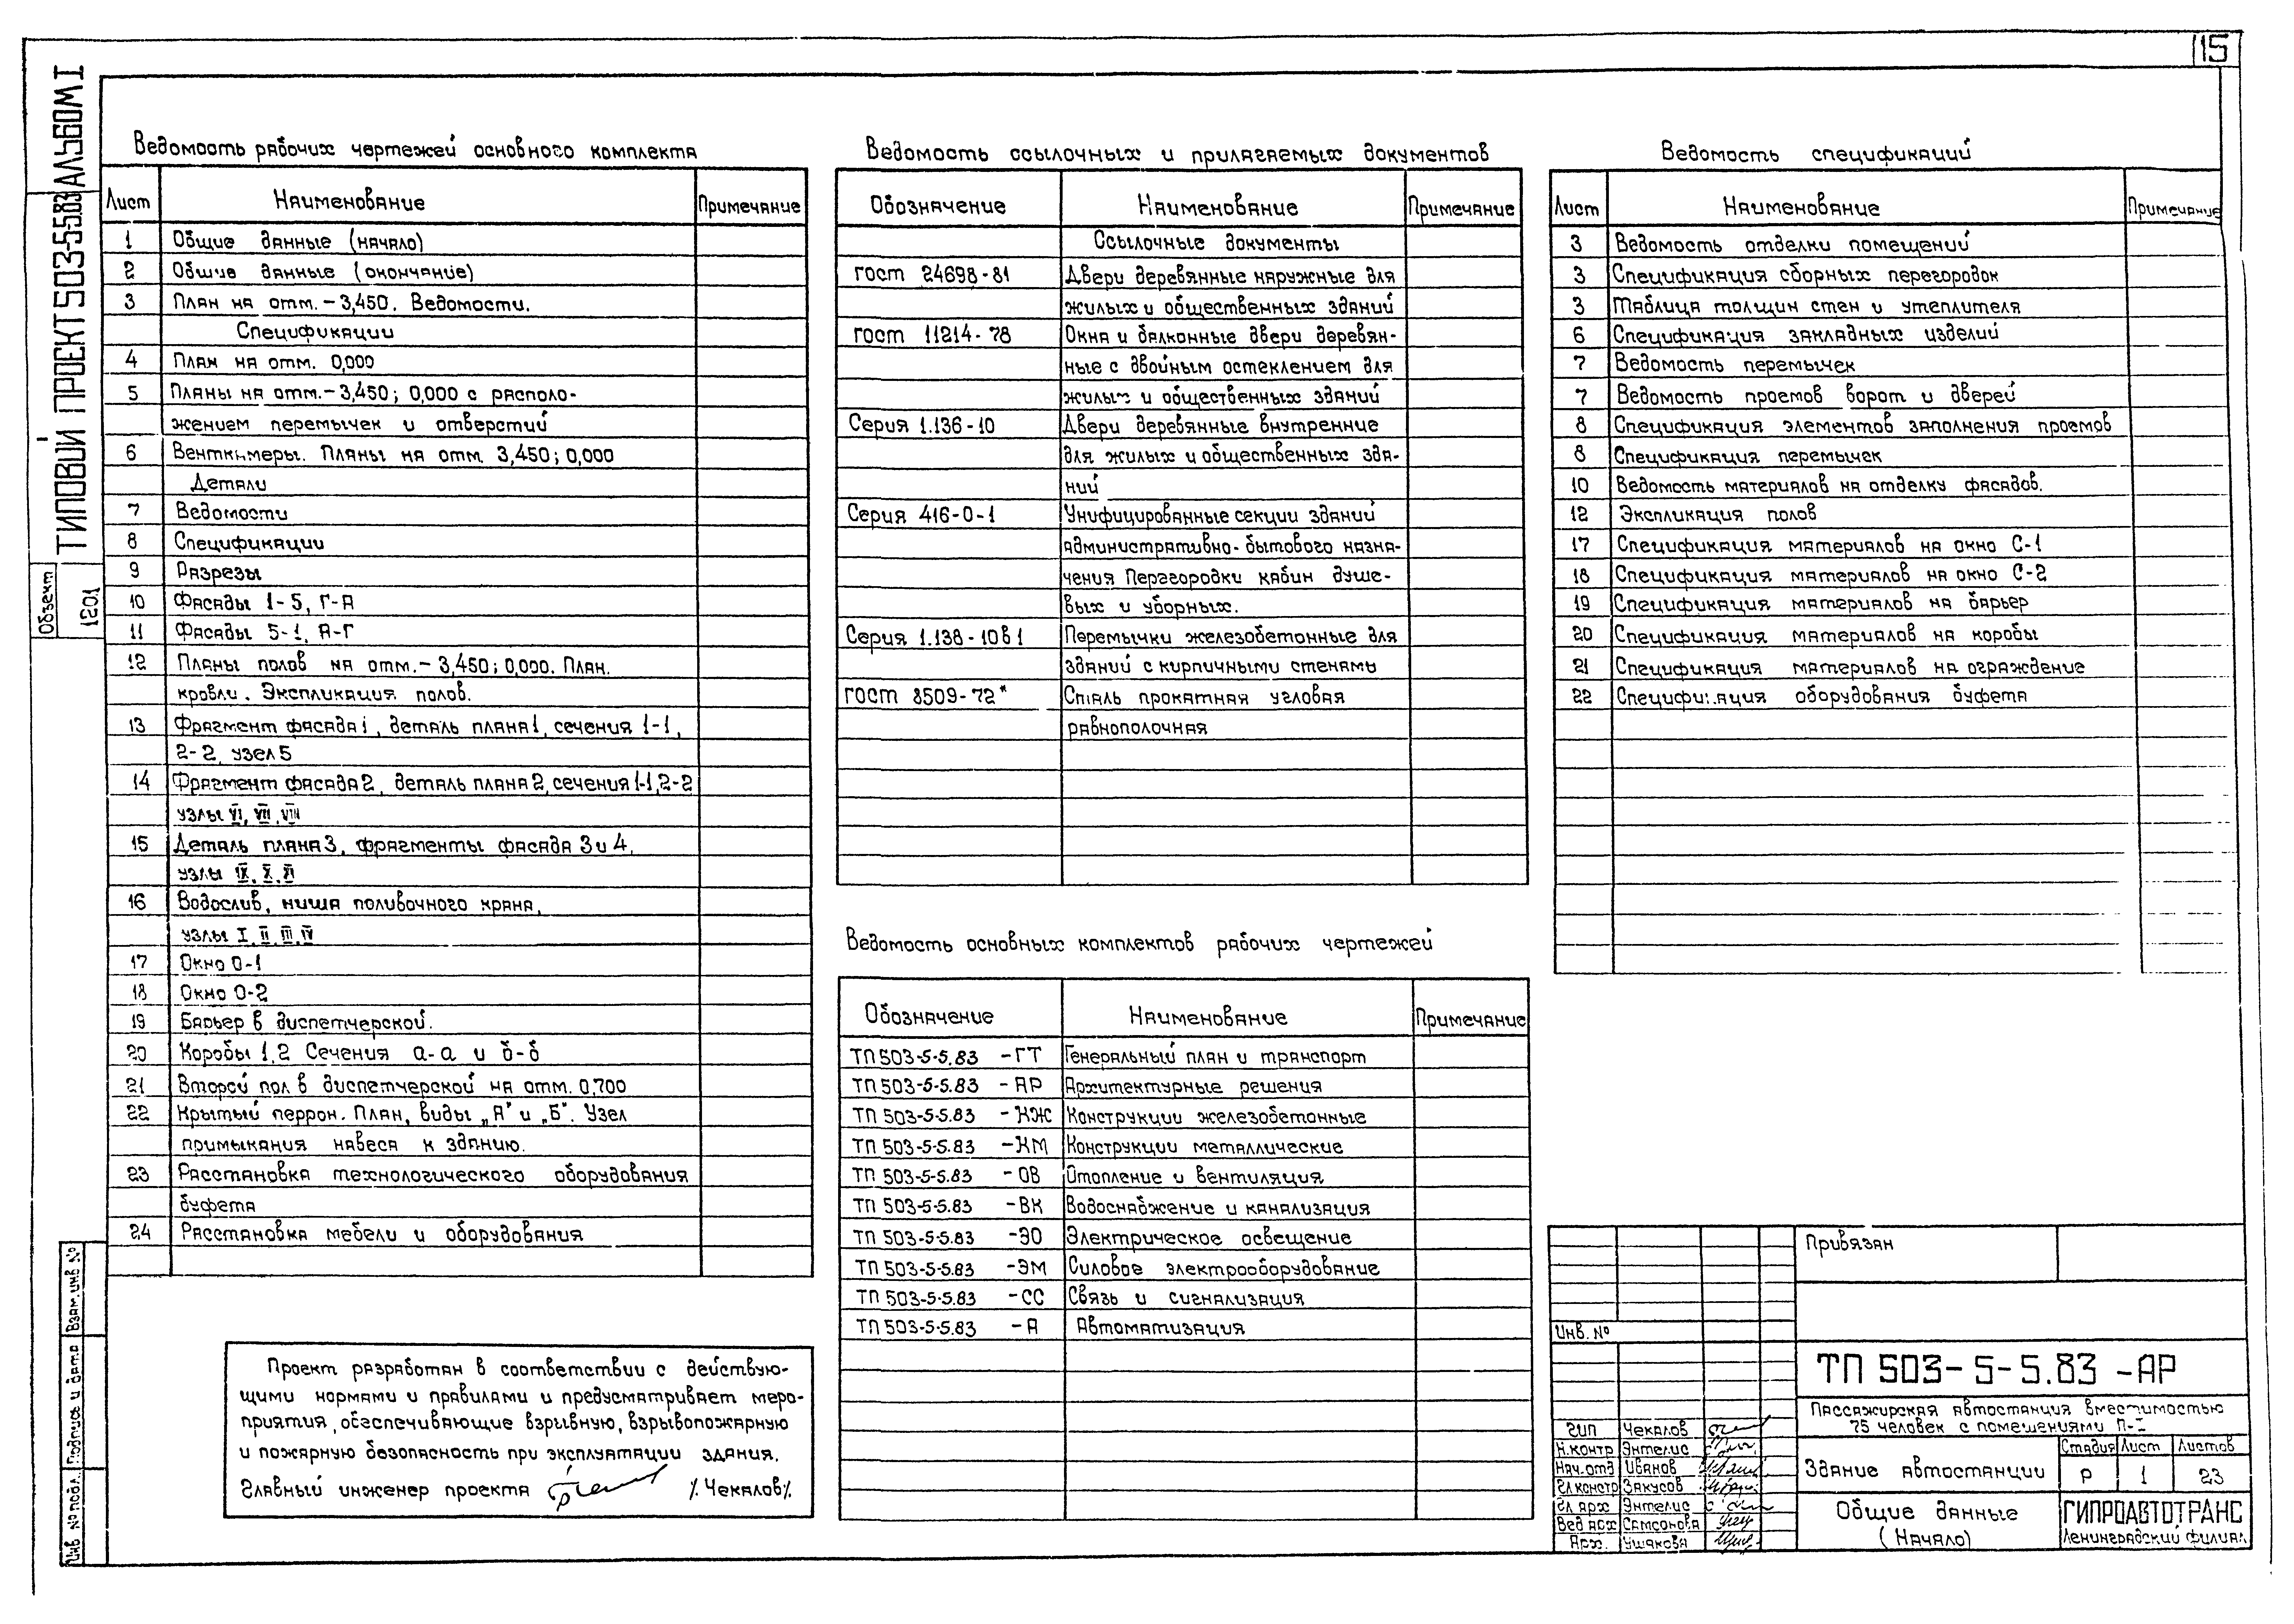 115
ТИПОВИЙ ПРОЕКТ 503-5-5.83 АЛЬБОМ I
Объект
1201
Ведомость рабочих чертежей основного комплекта
Лист Наименование Примечание
1 Общие данные (начало)
2 Общие данные (окончание)
3 План на отм. -3,450. Ведомости.
Спецификации
4 План на отм. 0,000
5 Планы на отм. -3,450; 0,000 с располо-
жением перемычек и отверстий
6 Венткамеры. Планы на отм. 3,450; 0,000
Детали
7 Ведомости
8 Спецификации
9 Разрезы
10 Фасады 1-5, Г-А
11 Фасады 5-1, А-Г
12 Планы полов на отм. -3,450; 0,000. План.
кровли. Экспликация полов.
13 Фрагмент фасада 1, деталь плана 1, сечения 1-1,
2-2, узел 5
14 Фрагмент фасада 2, деталь плана 2, сечения 1-1, 2-2
узлы VI, VII, VIII
15 Деталь плана 3, фрагменты фасада 3 и 4,
узлы IX, X, XI
16 Водослив, ниша поливочного крана,
узлы I, II, III, IV
17 Окно О-1
18 Окно О-2
19 Барьер в диспетчерской.
20 Коробы 1,2 Сечения а-а и б-б
21 Второй пол в диспетчерской на отм. 0,700
22 Крытый перрон. План, виды „А" и „Б". Узел
примыкания навеса к зданию.
23 Расстановка технологического оборудования
буфета
24 Расстановка мебели и оборудования
Проект разработан в соответствии с действую-
щими нормами и правилами и предусматривает меро-
приятия, обеспечивающие взрывную, взрывопожарную
и пожарную безопасность при эксплуатации здания.
Главный инженер проекта /. Чекалов/.
Ведомость ссылочных и прилагаемых документов
Обозначение Наименование Примечание
Ссылочные документы
ГОСТ 24698-81 Двери деревянные наружные для
жилых и общественных зданий
ГОСТ 11214-78 Окна и балконные двери деревян-
ные с двойным остеклением для
жилых и общественных зданий
Серия 1.136-10 Двери деревянные внутренние
для жилых и общественных зда-
ний
Серия 416-0-1 Унифицированные секции зданий
административно-бытового назна-
чения Перегородки кабин душе-
вых и уборных.
Серия 1.138-10 в 1 Перемычки железобетонные для
зданий с кирпичными стенами
ГОСТ 8509-72* Сталь прокатная угловая
равнополочная
Ведомость основных комплектов рабочих чертежей
Обозначение Наименование Примечание
ТП 503-5-5.83 -ГТ Генеральный план и транспорт
ТП 503-5-5.83 -АР Архитектурные решения
ТП 503-5-5.83 -КЖ Конструкции железобетонные
ТП 503-5-5.83 -КМ Конструкции металлические
ТП 503-5-5.83 -ОВ Отопление и вентиляция
ТП 503-5-5.83 -ВК Водоснабжение и канализация
ТП 503-5-5.83 -ЭО Электрическое освещение
ТП 503-5-5.83 -ЭМ Силовое электрооборудование
ТП 503-5-5.83 -СС Связь и сигнализация
ТП 503-5-5.83 -А Автоматизация
Ведомость спецификаций
Лист Наименование Примечание
3 Ведомость отделки помещений
3 Спецификация сборных перегородок
3 Таблица толщин стен и утеплителя
6 Спецификация закладных изделий
7 Ведомость перемычек
7 Ведомость проемов ворот и дверей
8 Спецификация элементов заполнения проемов
8 Спецификация перемычек
10 Ведомость материалов на отделку фасадов.
12 Экспликация полов
17 Спецификация материалов на окно С-1
18 Спецификация материалов на окно С-2
19 Спецификация материалов на барьер
20 Спецификация материалов на коробы
21 Спецификация материалов на ограждение
22 Спецификация оборудования буфета
Привязан
Инв. №
ТП 503-5-5.83 -АР
Пассажирская автостанция вместимостью
75 человек с помещениями П-I
ГИП Чекалов
Н.контр Энтелис
Нач.отд Иванов
Гл.констр Закусов
Гл арх Энтелис
Вед арх Самсонова
Арх. Ушакова
Здание автостанции
Стадия Лист Листов
Р 1 23
Общие данные
(Начало)
ГИПРОАВТОТРАНС
Ленинградский филиал
Взам. инв №
Подпись и дата
Инв № подл.